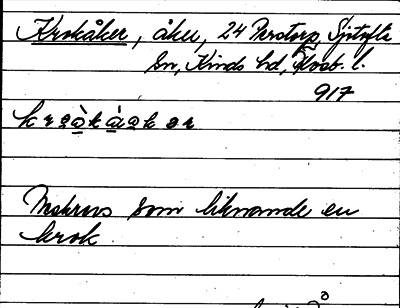 Krokåker, åker, 24 Perstorp, Sjötofta
sn, Kinds hd, Älvsb. l.
917
Makrors som liknande en
krok